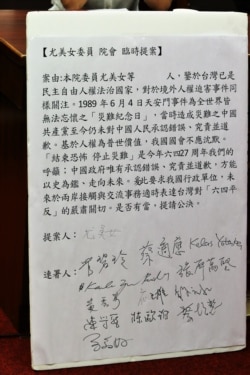 【尤美女委員 院會 臨時提案】
案由:本院委員尤美女等 人,鑒於台灣已是
民主自由人權法治國家,對於境外人權迫害事件同
樣關注。1989 年 6 月 4 日天安門事件為全世界皆
無法忘懷之「災難紀念日」,當時造成災難之中國
共產黨至今仍未對中國人民承認錯誤、究責並道
歉。基於人權為普世價值,我國國會不應沈默。
「結束恐怖 停止災難」是今年六四27 周年我們的
呼籲;中國政府唯有承認錯誤、究責並道歉,方能
以史為鑑、走向未來。爰此要求我國行政單位,未
來於兩岸接觸與交流事務適時表達台灣對「六四平
反」的嚴肅關切。是否有當,提請公決。
提案人: 尤美女
連署人: 蔡適應 Kolas Yotaka
陳欧珀